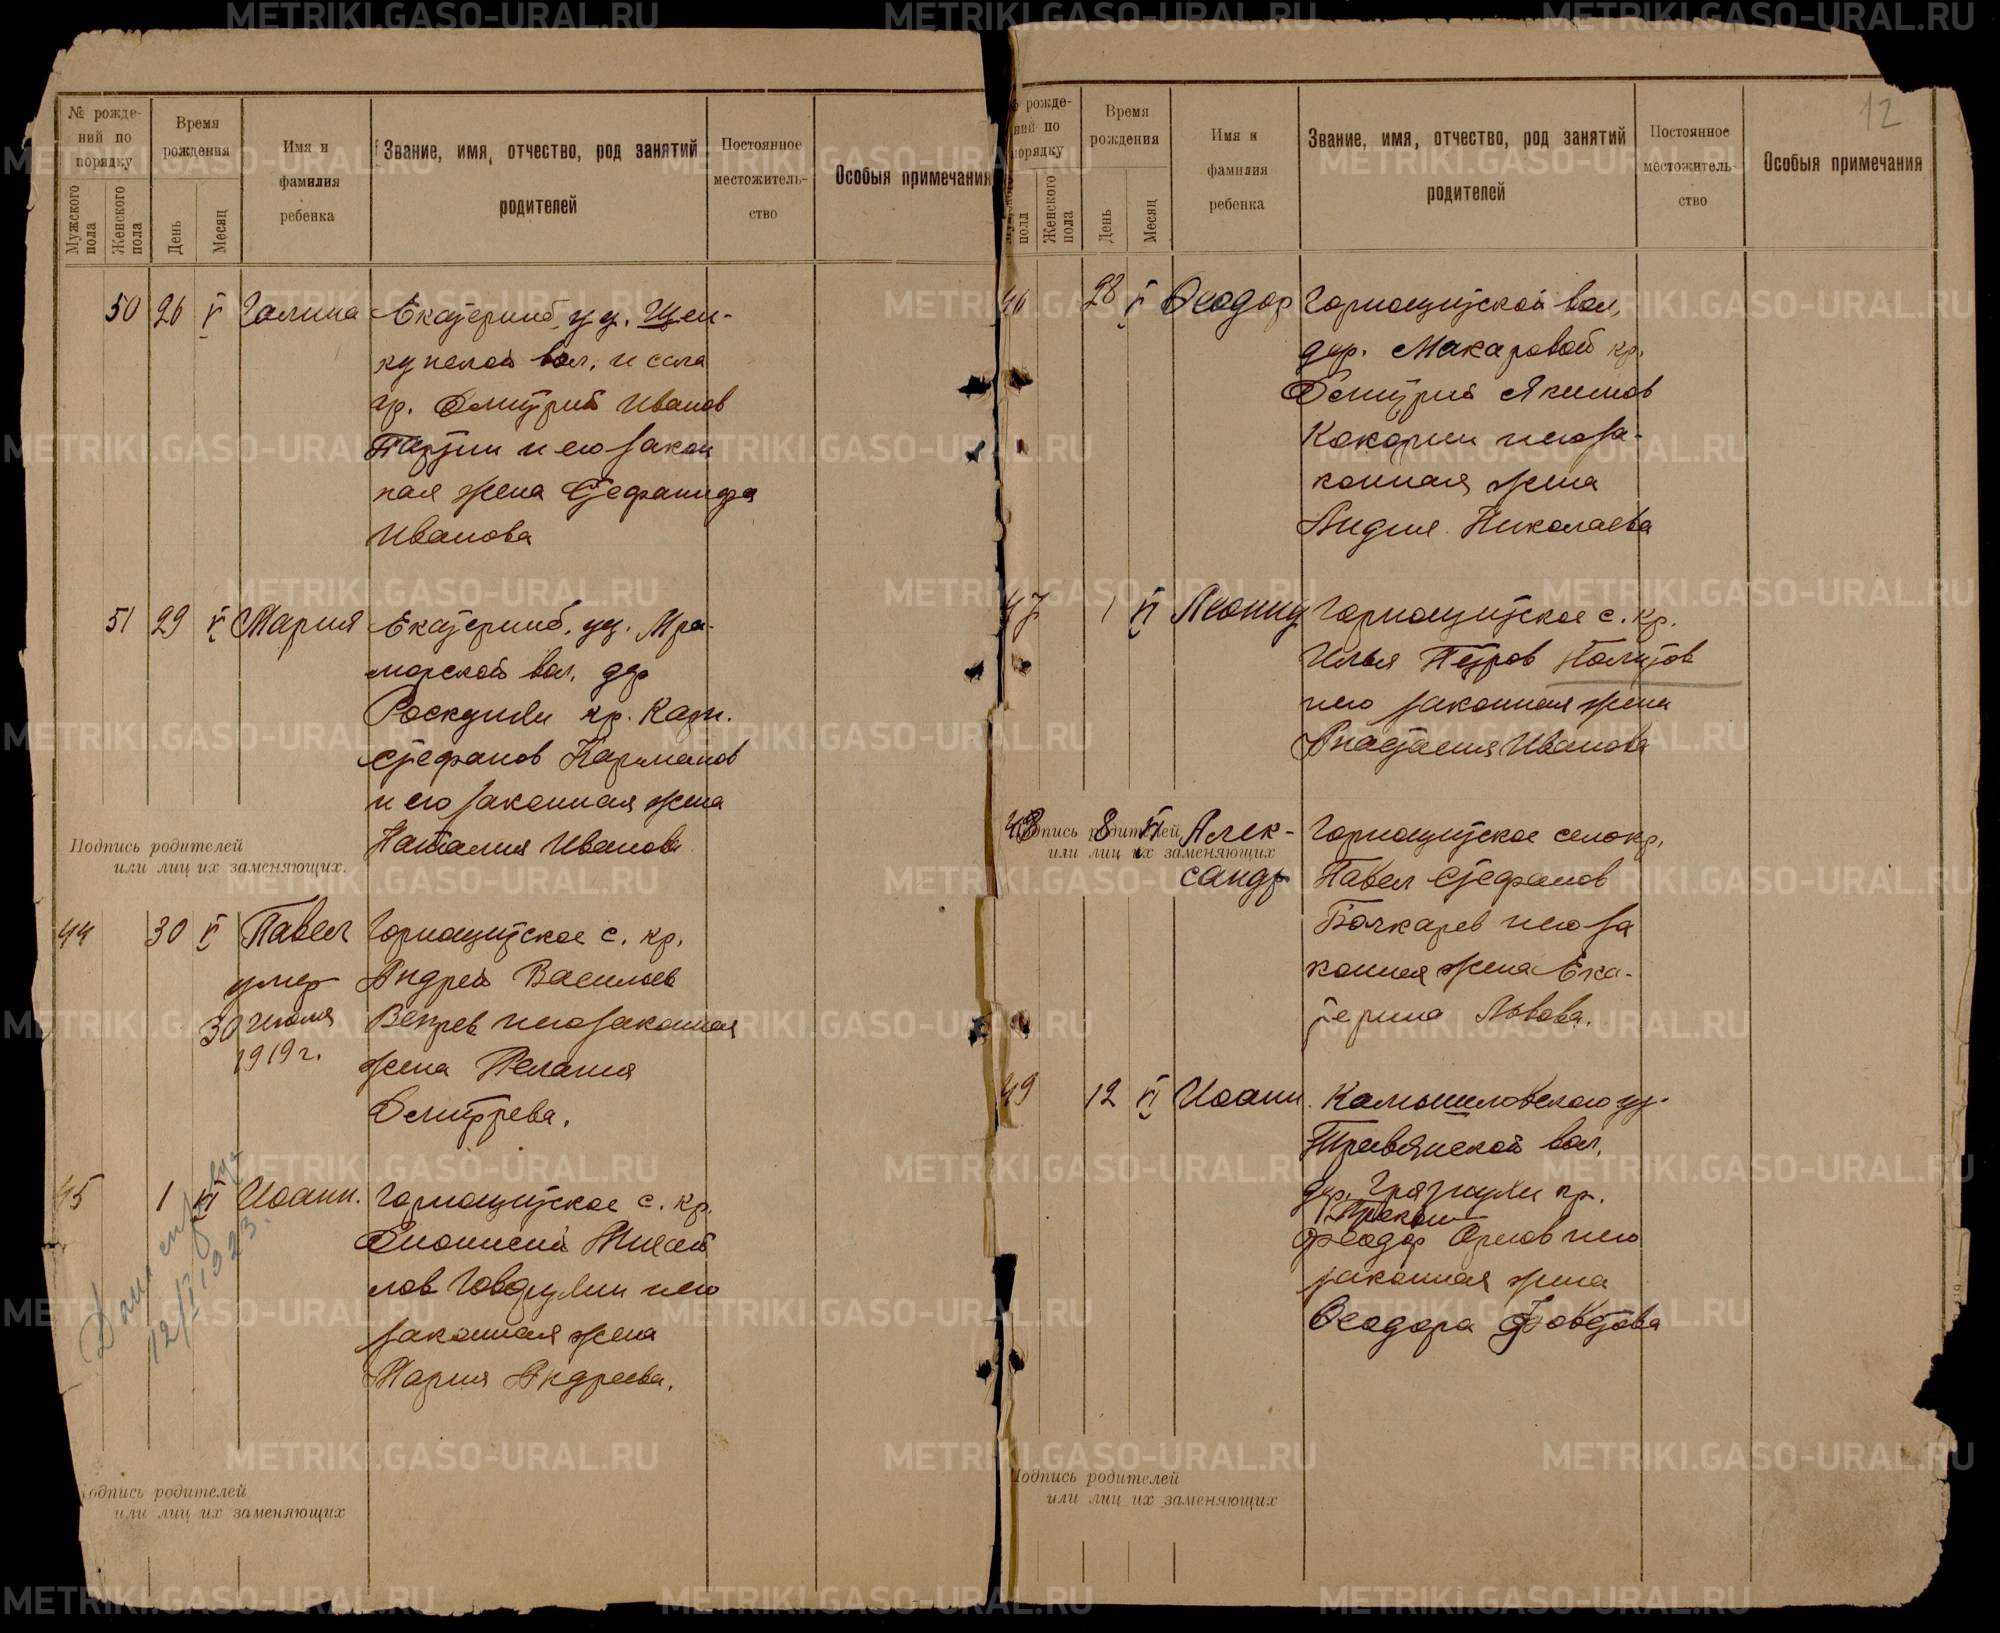 № рожде-
ний по
порядку
Мужского
пола
Женского
пола
Время
рождения
День
Месяц
Имя и
фамилия
ребенка
Звание, имя, отчество, род занятий
родителей
Постоянное
местожитель-
ство
Особыя примечания
50 26 V Галина Екатеринб. уу. Щел-
кунской вол. и села
гр. Димитрий Иванов
и его закон
ная жена Стефанида
Иванова
51 29 V Мария Екатеринб. уу. Мра-
морской вол. дер
Раскуихи кр. Казм.
Стефанов
и его законная жена
Наталия Иванова
Подпись родителей
или лиц их заменяющих.
44 30 V Павел Горнощитское с. кр.
умер Андрей Васильев
30 июля Вепрев и его законная
1919 г. жена Пелагия
Димитрева.
45 1 VI Иоанн. Горнощитское с. кр.
Дионисий Михай
лов и его
законная жена
Мария Андреева.
12/I 1923.
Подпись родителей
или лиц их заменяющих
12
рожде-
ний по
порядку
пола
Женского
пола
Время
рождения
День
Месяц
Имя и
фамилия
ребенка
Звание, имя, отчество, род занятий
родителей
Постоянное
местожитель-
ство
Особыя примечания
46 28 V Феодор Горнощитской вол.
дер. Макаровой кр.
Димитрий Якимов
Кокорин и его за-
конная жена
Лидия Николаева
47 1 VI Леонид Горнощитское с. кр.
Илья Петров Полутов
и его законная жена
Анастасия Иванова
48 8 VI Алек- Горнощитское село кр.
Подпись родителей
или лиц их заменяющих
сандр Павел Стефанов
Бочкарев и его за
конная жена Ека-
терина Львова.
49 12 VI Иоанн. Камышловского уу.
Травянской вол.
дер. Грязнухи кр.
Феодор Орлов и его
законная жена
Феодора
Подпись родителей
или лиц их заменяющих
METRIKI.GASO-URAL.RU